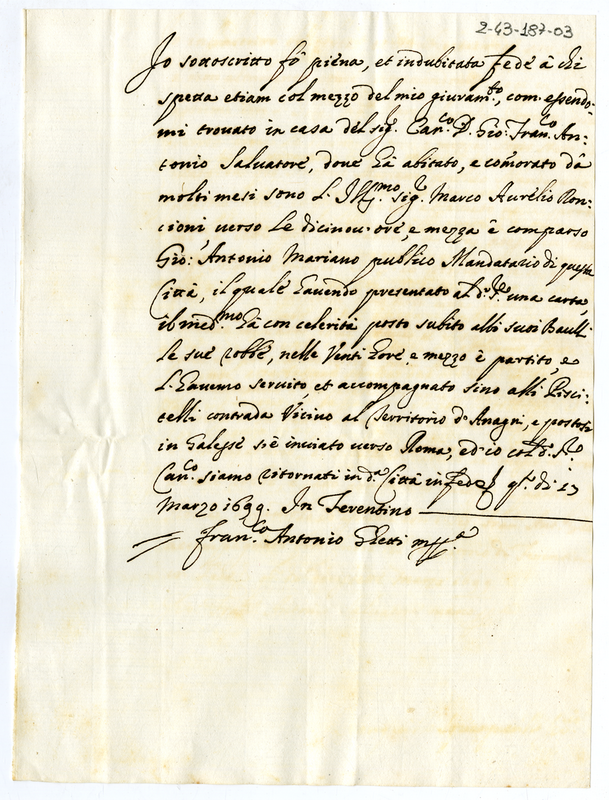 2-43-187-03
Io sottoscritto fò piena, et indubitata fede à chi
spetta etiam col mezzo del mio giuram.to, com'essendo-
mi trovato in casa del sig. Can.co D. Gio: Fran.co An-
tonio Salvatore, dove hà abitato, e com̃orato dà
molti mesi sono l'Ill.mo sig.r Marco Aurelio Ron-
cioni verso le dicinov'ore, e mezza è comparso
Gio: Antonio Mariano publico Mandatario di questa
Città, il quale havendo presentato al d.o S.re una carta,
il med.mo hà con celerità posto subito alli suoi Baulli
le sue robbe, nelle Venti hore e mezzo è partito, e
l'havemo servito, et accompagnato sino alli Pisci-
telli contrada Vicino al Territorio d'Anagni, e postosi
in Galesse s'è inviato verso Roma, ed io col d.o S.r
Can.co siamo ritornati in d.a Città in fede q.to dì 13
Marzo 1699. In Ferentino
Fran.co Antonio Ghetti mp.a